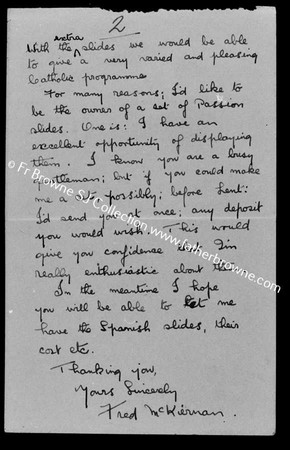 2
With the extra slides we would be able
to give a very varied and pleasing
Catholic programme
For many reasons; I'd like to
be the owner of a set of Passion
slides. One is: I have an
excellent opportunity of displaying
them. I know you are a busy
gentleman; but if you could make
me a set possibly; before Lent:
I'd send you at once; any deposit
you would wish. This would
give you confidence I'm
really enthusiastic about
In the meantime I hope
you will be able to let me
have the Spanish slides, their
cost etc.
Thanking you,
Yours Sincerely
Fred McKiernan.
© Fr Browne SJ Collection
www.fatherbrowne.com